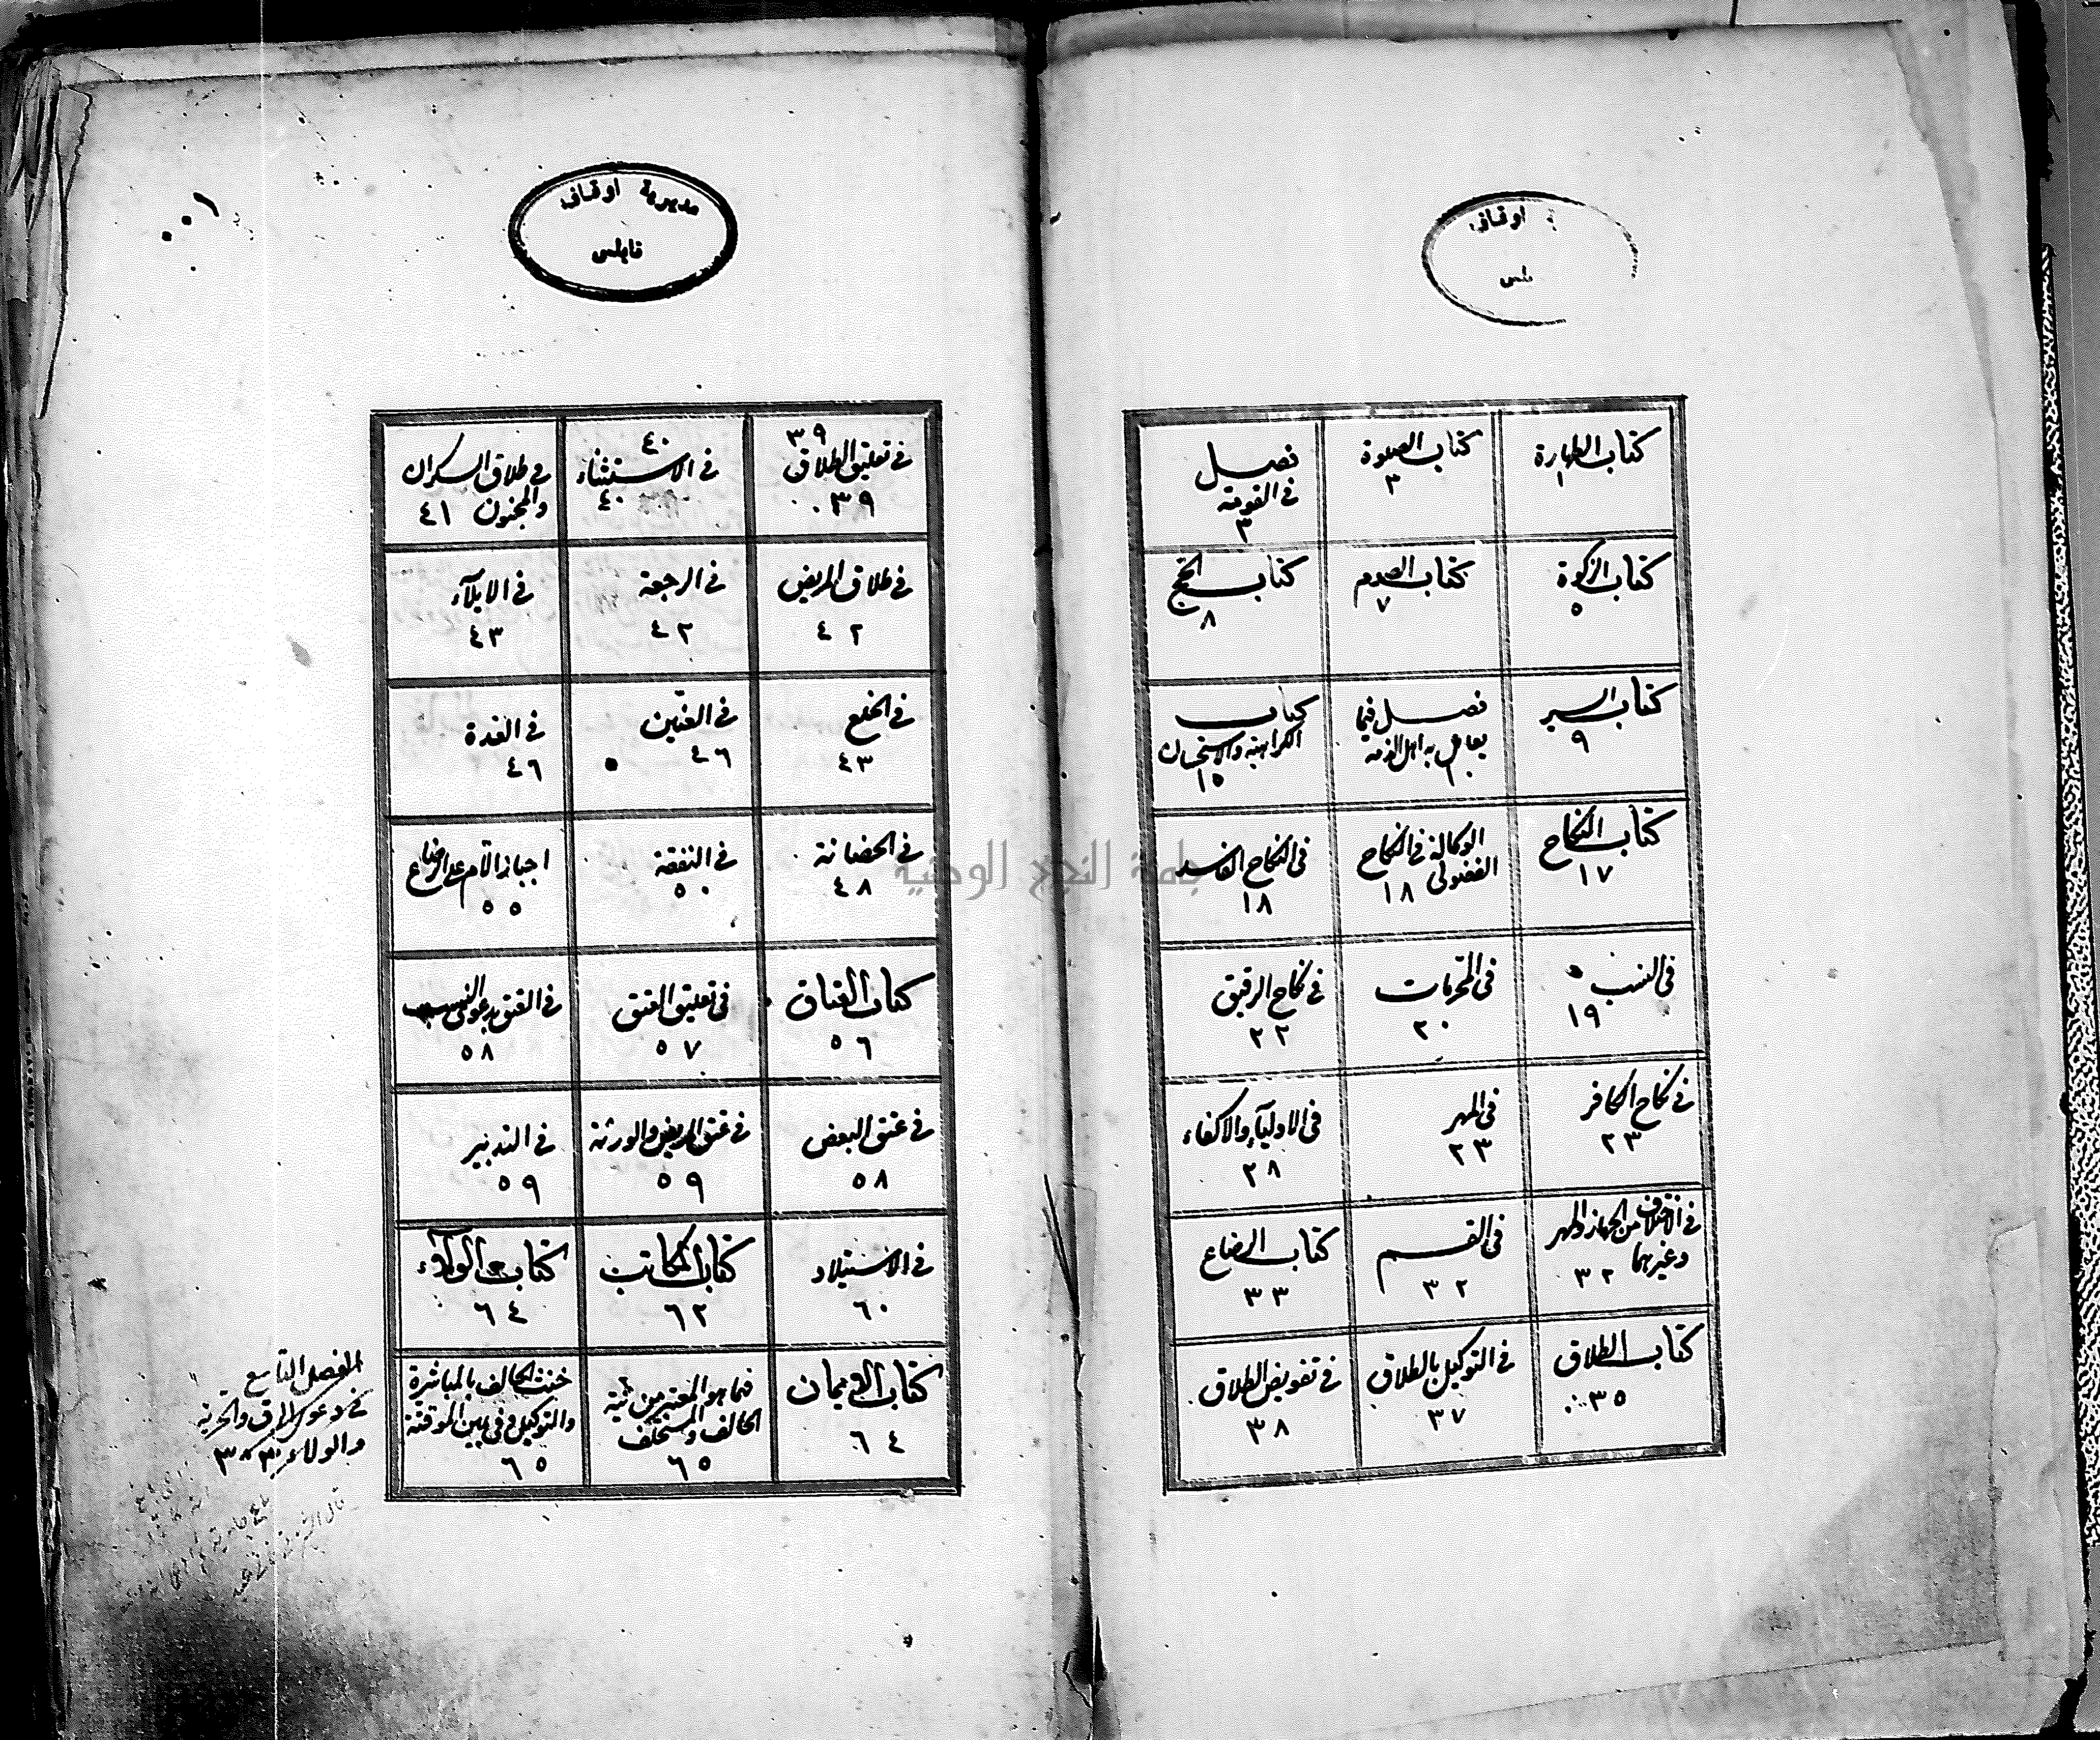 اوقاف
كتاب الطهارة
١
كتاب الصلوة
٢
فصل
في الفوقة
٣
كتاب الزكوة
٥
كتاب الصوم
٧
كتاب الحج
٨
كتاب السير
٩
فصل فيما
يعامل به اهل الذمه
١٠
كتاب
الكراهية والاستحسان
١٥
كتاب النكاح
١٧
الوكالة في النكاح
الفضولى ١٨
فى النكاح الفاسد
١٨
فى النسب
١٩
فى المحرمات
٢٠
في نكاح الرقيق
٢٢
في نكاح الكافر
٢٣
فى المهر
٢٣
فى الاوليآء والاكفاء
٢٨
في الاختلاف من الجهاز والمهر
وغيرهما ٣٢
فى القسم
٣٢
كتاب الرضاع
٣٣
كتاب الطلاق
٣٥
في التوكيل بالطلاق
٣٧
في تفويض الطلاق
٣٨
مديرية اوقاف
نابلس
٠٠١
٣٩
في تعليق الطلاق
٣٩
٤٠
في الاستثناء
٤٠
في طلاق السكران
والمجنون ٤١
في طلاق المريض
٤٢
في الرجعة
٤٢
في الايلآء
٤٣
في الخلع
٤٣
في العنين
٤٦
في العدة
٤٦
في الحضانة
٤٨
في النفقة
٥٠
اجبار الأم على الرضاع
٥٥
كتاب العتاق
٥٦
في تعليق العتق
٥٧
في العتق بدعوى النسب
٥٨
في عتق البعض
٥٨
في عتق المريض والورثة
٥٩
في التدبير
٥٩
في الاستيلاد
٦٠
كتاب المكاتب
٦٢
كتاب الولآء
٦٤
كتاب الايمان
٦٤
فيما هو المعتبر من نية
الحالف والمستحلف
٦٥
حنث الحالف بالمباشرة
والتوكيل وفي يمين الموقتة
٦٥
الفصل التاسع
في دعوى الرق والحرية
والولاء
جامعة النجاح الوطنية